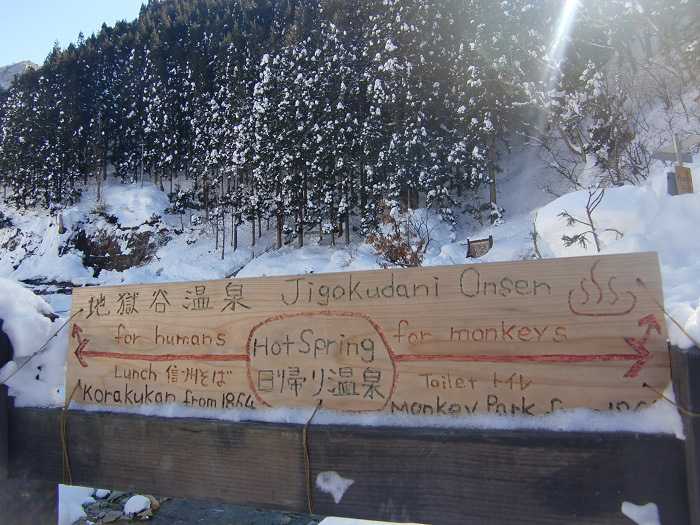 地獄谷温泉 Jigokudani Onsen
for humans
Hot Spring
for monkeys
Lunch 信州そば
日帰り温泉
Toilet トイレ
Korakukan from 1864
Monkey Park